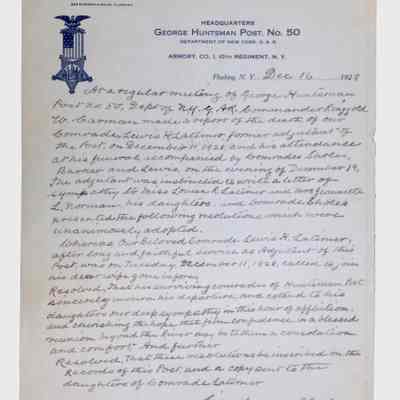 HEADQUARTERS
GEORGE HUNTSMAN POST, NO. 50
DEPARTMENT OF NEW YORK, G. A. R.
ARMORY, CO. I, 10TH REGIMENT, N. Y.
Flushing, N. Y. Dec 16 1928
At a regular meeting of George Huntsman
Post no 50, Dept of N.Y. G.A.R. Commander
W. Carman made a report of the death of our
Comrade Lewis H. Latimer former adjutant of
the Post, on December 11, 1928, and his attendance
at his funeral accompanied by Comrades
Barker and Lewis, on the evening of December
The adjutant was instructed to write a letter of
Sympathy to Miss Louise R. Latimer and Mrs Jeannette
L. Norman his daughters. and Comrade
presented the following resolutions which were
unanimously adopted.
Whereas Our Beloved Comrade Lewis H. Latimer,
after long and faithful service as Adjutant of this
Post was on Tuesday December 11, 1928, called to join
his dear wife gone before
Resolved, That his surviving comrades of Huntsman Post
sincerely mourn his departure and extend to his
daughters our deep sympathy in this hour of affliction,
and cherishing the hope that firm confidence in a blessed
reunion beyond the River may be to them a consolation
and comfort And further
Resolved, That these resolutions be inscribed on the
Records of this Post and a copy sent to the
daughters of Comrade Latimer